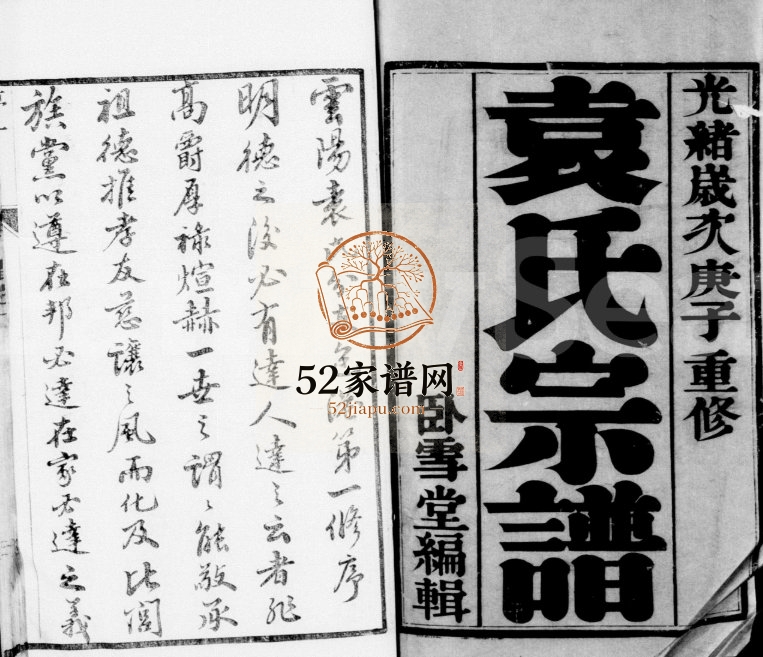 光緒歲次庚子重修
袁氏宗譜
臥雪堂編輯
雲陽袁 第一修序
明德之後必有達人達之云者非
高爵厚祿煊赫一世之謂謂能敬承
祖德推孝友慈讓之風而化及比閭
族黨以遵在邦必達在家必達之義
52家谱网
52jiapu.com